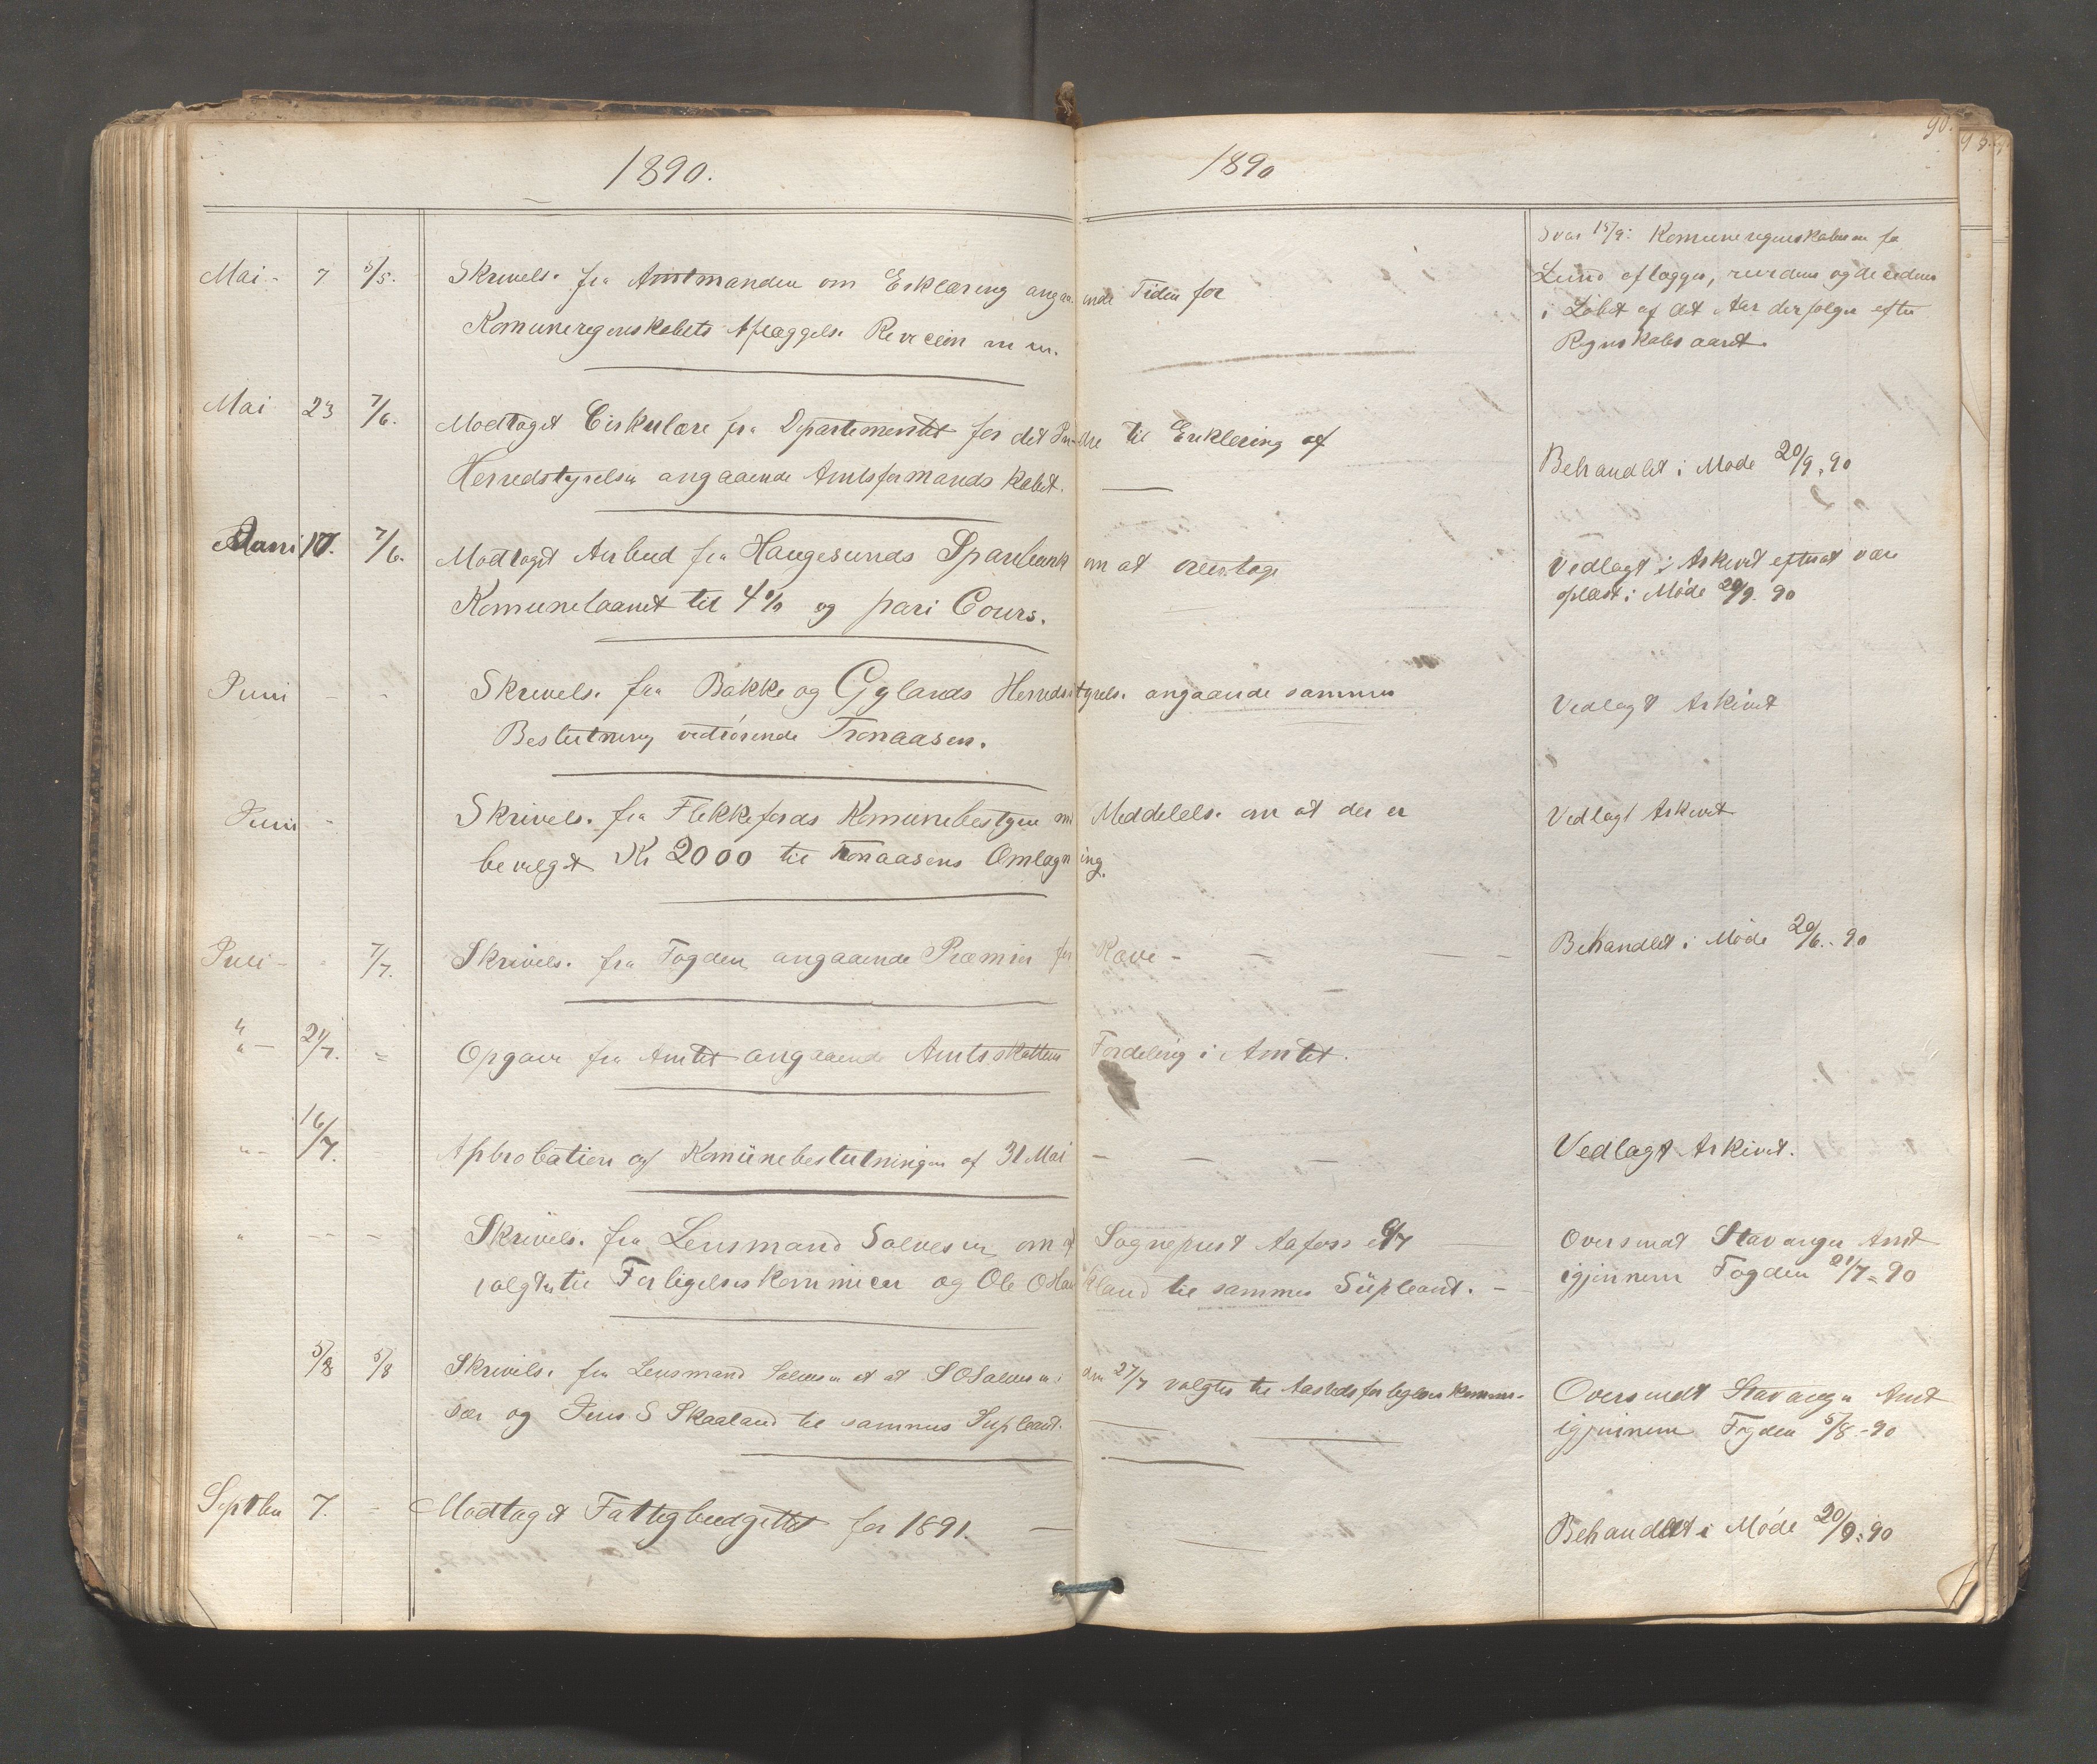 1890.
1890
90.
Mai - 7 5/5. Skrivels. fra Amtmanden om Erklæring angaaende Tiden for
Komuneregenskabets Aflæggels. Revision m m.
Svar 15/9: Komuneregnskaberne fo
Lund aflægges, revideres og decideres
i Løbet af det Aar der følger efter
Regnskabsaaret.
Mai 23 7/6. Modtaget Cirkulære fra Departementet for det Indre til Erklering af
Herredstyrelsen angaaende Amtsformandskabet. —
Behandlet i Møde 20/9. 90
17. 7/6. Modtaget Anbud fra Haugesunds Sparebank om at overtage
Komunelaanet til 4% og pari Cours.
Vedlagt i Arkivet efterat være
oplæst i Møde 20/9. 90
Juni - - Skrivels. fra Bakke og Gylands Herredstyrels. angaaende sammes
Beslutning vedrørende Tronaasen.
Vedlagt Arkivet
Juni - Skrivels. fra Flekkefjords Komunebestyre med Meddelels. om at der er
bevilget Kr 2000 til Tronaasens Omlægning.
Vedlagt Arkivet
Juli - 7/7. Skrivels. fra Fogden angaaende Præmier for Ræve - —
Behandlet i Møde 20/6. 90
" - 21/7. = Opgave fra Amtet angaaende Amtsskattens Fordeling i Amtet.
" - 16/7. Aprobation af Komünebeslutningen af 31 Mai — — —
Vedlagt Arkivet.
" -- - Skrivels. fra Lensmand Salvesen om at Sognepræst Aafoss er 6/7
valgt til Forligelseskommisær og Ole Oskar land til sammes Süpleant. -
Oversendt Stavanger Amt
igjennem Fogden 21/7 - 90
5/8 5/8 Skrivels. fra Lensmand Salvesen at at S O Salvesen den 27/7 valgtes til Aastedsforligelseskommi-
sær og Jens S Skaaland til sammes Supleant.
Oversendt Stavanger Amt
igjennem Fogden 5/8 - 90
Septber 7. = Modtaget Fattigbudgettet for 1891. —
Behandlet i Møde 20/9. 90